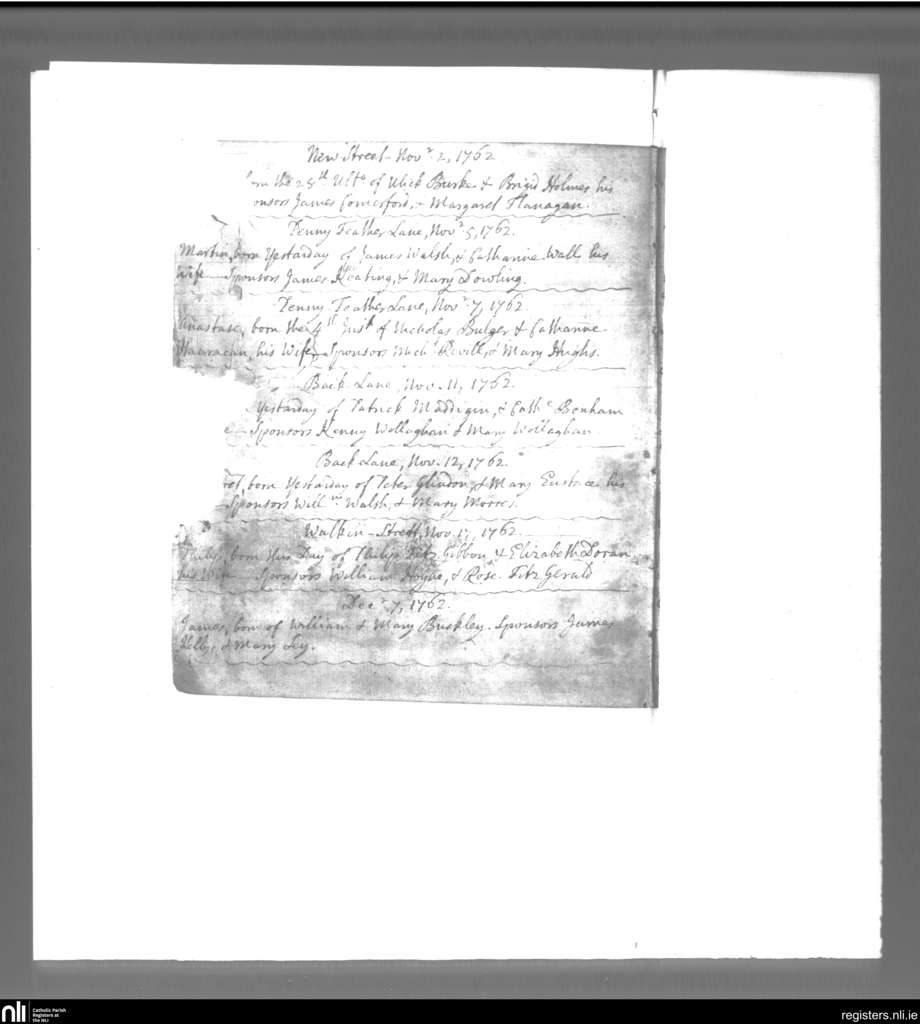 New Street - Novr. 2, 1762
the 28th Ulto of Ulick Burke & Brigid Holmes his
onsors James Comerford, & Margaret Flanagan.
Penny Feather Lane, Novr. 5, 1762.
Martin, born Yestarday of James Walsh, & Catharine Wall his
Wife Sponsors James Keating, & Mary Dowling.
Penny Feather Lane, Novr. 7, 1762.
Anastase, born the 4th Inst. of Nicholas Bulger & Catharine
his Wife Sponsors Michl. Revill, & Mary Hughs.
Back Lane, Nov. 11, 1762.
Yestarday of Patrick Maddigin, & Cathe Benham
Sponsors Kenny Wollaghan & Mary Wollaghan
Back Lane, Nov. 12, 1762.
ret, born Yestarday of Peter Glindon, & Mary Eustace his
Sponsors Willm Walsh, & Mary Morres.
Walkin-Street, Nov. 1762.
born this Day of Philip Fitz Gibbon & Elizabeth Doran
his Wife Sponsors William Hogne, & Rose Fitz Gerald
Decr. 7, 1762.
James, born of William & Mary Buckley. Sponsors James
Kelly, & Mary Ley.
nli
Catholic Parish
Registers at
the NLI
registers.nli.ie